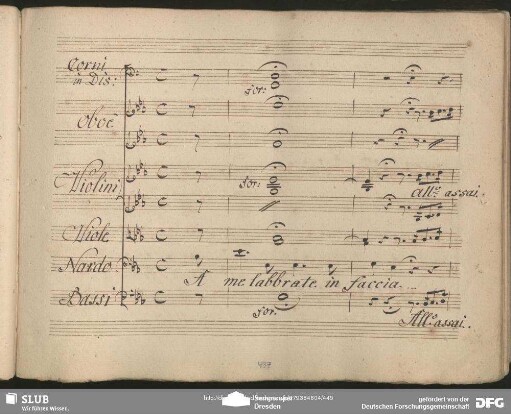 Corni
in Dis:
for:
Oboe
Violini
for:
All.º assai.
Viole
Nardo
A me labbrate in faccia
Bassi
for.
All.º assai.
SLUB
Wir führen Wissen.
Dresden
gefördert von der
Deutschen Forschungsgemeinschaft
DFG